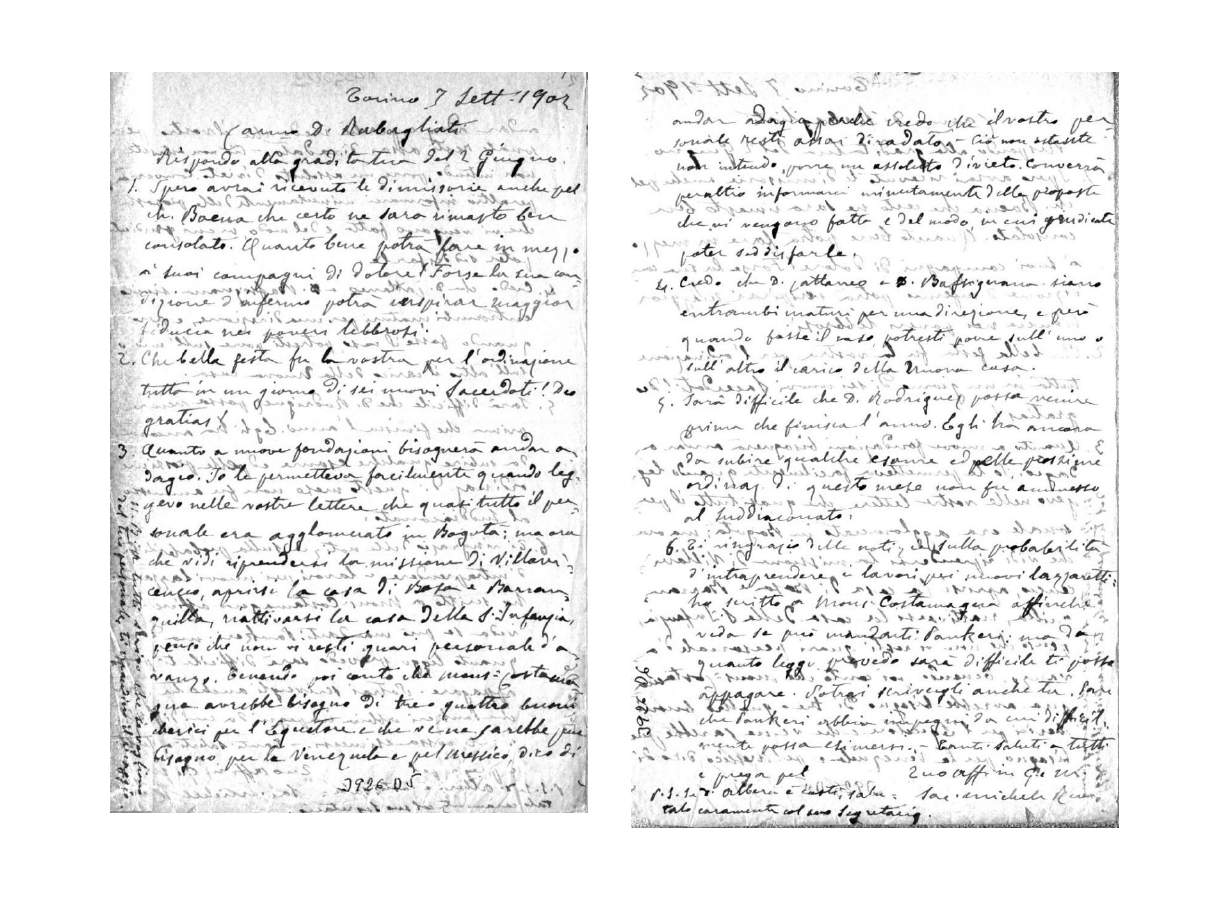 Torino 7 Sett. 1902
Carmo D. Rabagliati
Rispondo alla gradita tua del 2 Giugno.
1. Spero avrai ricevuto le dimissorie anche pel
ch. Baena che certo ne sarà rimasto ben
consolato. Quanto bene potrà fare in mezzo
a' suoi compagni di dolore! Forse la sua con
dizione d'infermo potrà inspirar maggior
fiducia nei poveri lebbrosi.
2. Che bella festa fu la vostra per l'ordinazione
tutta in un giorno di sei nuovi Sacerdoti! Deo
gratias!
3 Quanto a nuove fondazioni bisognerà andar a
dagio. Io le permetteva facilmente quando leg
gevo nelle vostre lettere che quasi tutto il per
sonale era agglomerato in Bogotà; ma ora
che vidi riprendersi la missione di Villavi-
cencio, aprirsi la casa di Bosa e Barran-
quilla, riattivarsi la casa della S. Infanzia,
penso che non vi resti guari personale d'a-
vanzo. Tenendo poi conto che Mons. Costama
gna avrebbe bisogno di tre o quattro buoni
chierici per l'Equatore e che ve ne sarebbe pure
bisogno per la Venezuela e pel Messico, dico di
3926 D5
andar adagio perchè credo che il vostro per-
sonale resti assai diradato. Ciò non ostante
non intendo porre un assoluto divieto. Converrà
peraltro informarci minutamente delle proposte
che vi vengono fatte e del modo, in cui giudicate
poter soddisfarle.
4. Credo che D. Cattaneo e D. Bassignana siano
entrambi maturi per una direzione, e però
quando fosse il caso, potresti porre sull'uno o
sull'altro il carico della nuova casa.
5. Sarà difficile che D. Rodriguez possa venire
prima che finisca l'anno. Egli ha ancora
da subire qualche esame e pelle prossime
ordinaz. di questo mese non fu ammesso
al suddiaconato.
6. Ti ringrazio delle notizie sulla probabilità
d'intraprendere i lavori pei nuovi lazzaretti:
ho scritto a Mons. Costamagna affinchè
veda se può mandarti Pankeri; ma da
quanto leggo prevedo sarà difficile ti possa
appagare. Potrai scrivergli anche tu. Pare
che Pankeri abbia impegni da cui difficil-
mente possa esimersi. - Tanti saluti a tutti
e prega pel Tuo aff.mo in G. e M.
Sac. Michele Rua
P.S. S. D. Albera è costì, salu-
talo caramente col suo segretario.
3926 D6